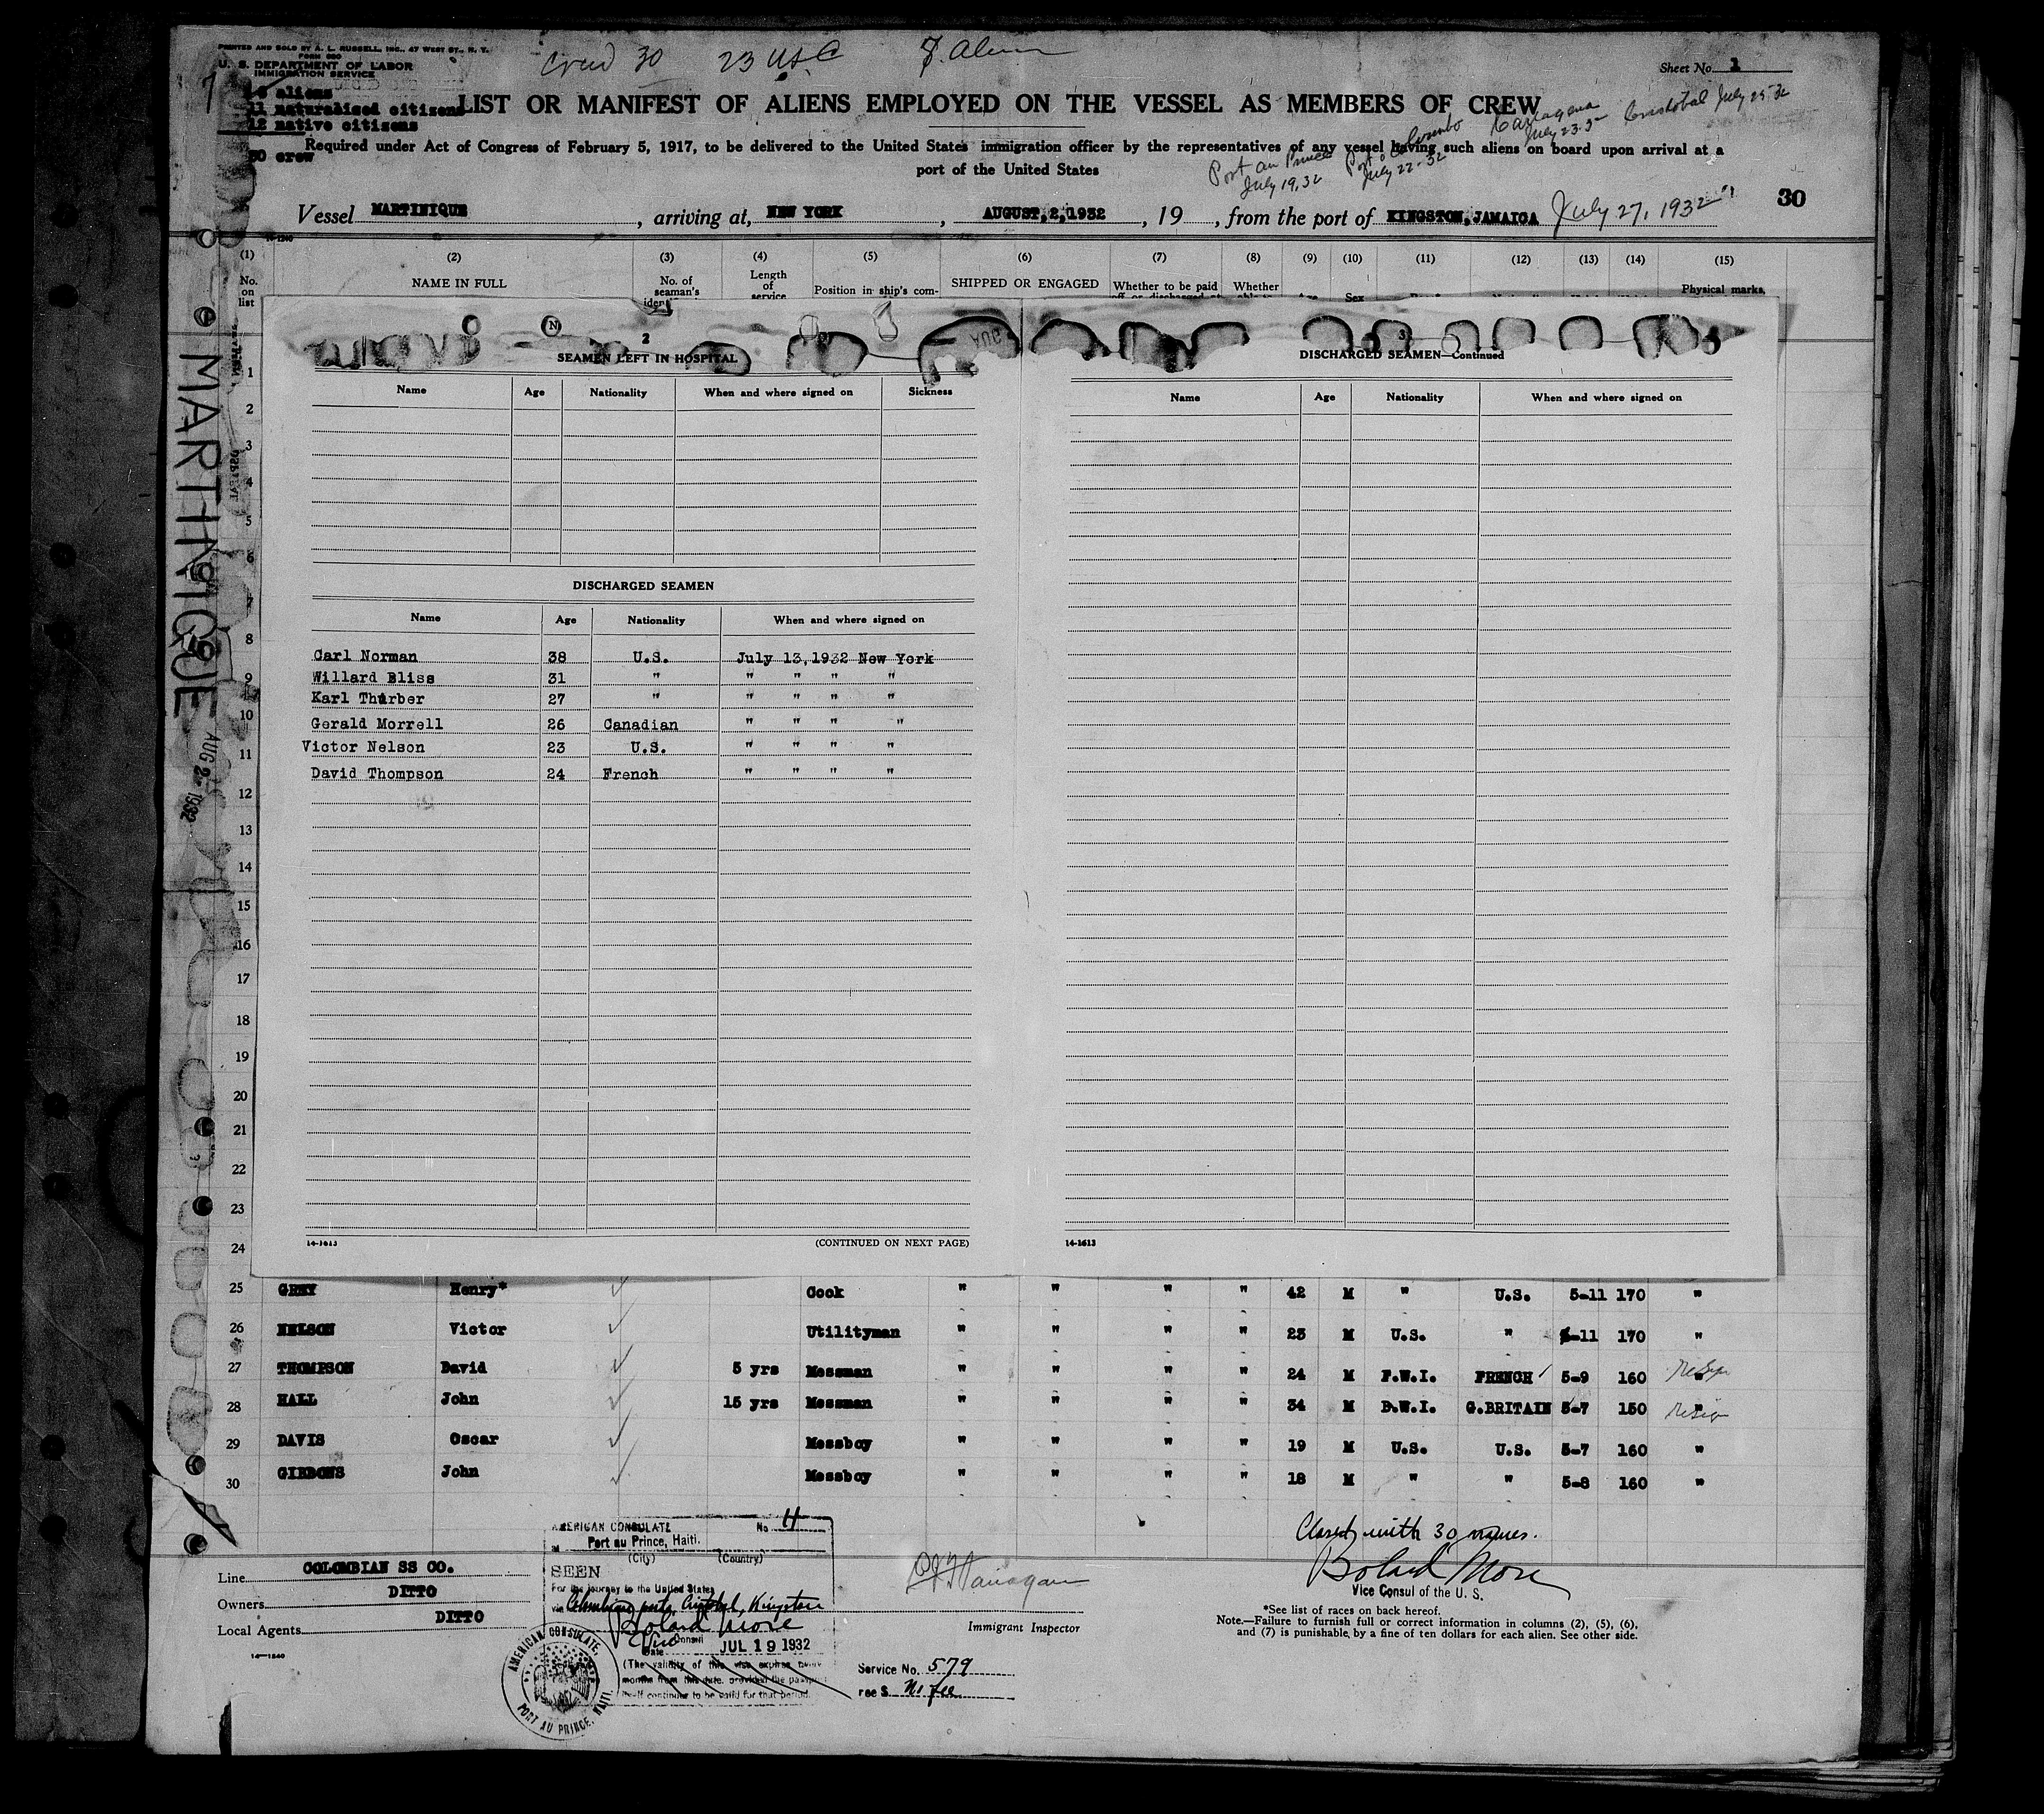 PRINTED AND SOLD BY A. L. RUSSELL, INC., 47 WEST ST., N. Y.
U. S. DEPARTMENT OF LABOR
IMMIGRATION SERVICE
Crew 30 23 USC 7 Aliens
Sheet No. 1
7 aliens
11 naturalized citizens
12 native citizens
30 crew
LIST OR MANIFEST OF ALIENS EMPLOYED ON THE VESSEL AS MEMBERS OF CREW
Cartagena July 23-32
Cristobal July 25 32
Required under Act of Congress of February 5, 1917, to be delivered to the United States immigration officer by the representatives of any vessel having such aliens on board upon arrival at a
port of the United States
Port au Prince July 19, 32
Porto Colombo July 22-32
Vessel MARTINIQUE, arriving at, NEW YORK, AUGUST, 2, 1932, 19 , from the port of KINGSTON, JAMAICA July 27, 1932 30
(1) (2) (3) (4) (5) (6) (7) (8) (9) (10) (11) (12) (13) (14) (15)
No. on list
NAME IN FULL
No. of seaman's
Length of service
Position in ship's com-
SHIPPED OR ENGAGED
Whether to be paid
Whether
Sex
Physical marks,
MARTINIQUE
AUG 2 - 1932
2
SEAMEN LEFT IN HOSPITAL
Name Age Nationality When and where signed on Sickness
DISCHARGED SEAMEN
Name Age Nationality When and where signed on
Carl Norman 38 U.S. July 13, 1932 New York
Willard Bliss 31 " " " " "
Karl Thurber 27 " " " " "
Gerald Morrell 26 Canadian " " " "
Victor Nelson 23 U.S. " " " "
David Thompson 24 French " " " "
14-1613 (CONTINUED ON NEXT PAGE)
3
DISCHARGED SEAMEN—Continued
Name Age Nationality When and where signed on
14-1613
1
2
3
4
5
6
7
8
9
10
11
12
13
14
15
16
17
18
19
20
21
22
23
24
25 GREY Henry* Cook " " " " 42 M " U.S. 5-11 170 "
26 NELSON Victor Utilityman " " " " 23 M U.S. " -11 170 "
27 THOMPSON David 5 yrs Messman " " " " 24 M F.W.I. FRENCH 5-9 160 "
28 HALL John 15 yrs Messman " " " " 34 M B.W.I. G.BRITAIN 5-7 150 "
29 DAVIS Oscar Messboy " " " " 19 M U.S. U.S. 5-7 160 "
30 GIBBONS John Messboy " " " " 18 M " " 5-8 160 "
Closed with 30 names.
Boland More
Vice Consul of the U. S.
Line COLOMBIAN SS CO.
Owners DITTO
Local Agents DITTO
14-1240
AMERICAN CONSULATE No. 11
at Port au Prince, Haiti.
(City) (Country)
SEEN
For the journey to the United States
via Colombian ports, Cristobal, Kingston
Boland More
Vice Consul
Date JUL 19 1932
(The validity of this visa expires twelve
months from this date, provided the passport
itself continues to be valid for that period.
AMERICAN CONSULATE,
PORT AU PRINCE, HAITI.
Service No. 579
Fee $ No fee
Immigrant Inspector
*See list of races on back hereof.
Note.—Failure to furnish full or correct information in columns (2), (5), (6),
and (7) is punishable by a fine of ten dollars for each alien. See other side.